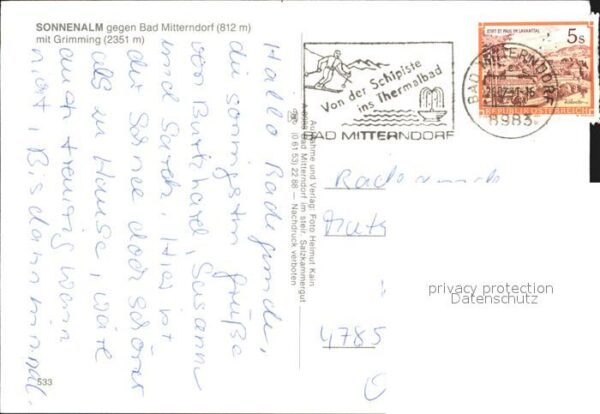 SONNENALM gegen Bad Mitterndorf (812 m)
mit Grimming (2351 m)
Hallo Badefreunde,
die sonnigsten Grüße
von Burkhard, Susanne
und Sarah. Hier ist
die Sonne doch schöner
als zu Hause, wäre
auch traurig wenn
nicht, Bis dann mal.
533
Aufnahme und Verlag: Foto Helmut Kain
A-8983 Bad Mitterndorf im steir. Salzkammergut
(0 61 53) 22 88 — Nachdruck verboten
Von der Schipiste
ins Thermalbad
BAD MITTERNDORF
BAD MITTERNDORF
8983
STIFT ST. PAUL IM LAVANTTAL
5s
REPUBLIK ÖSTERREICH
4785
privacy protection
Datenschutz